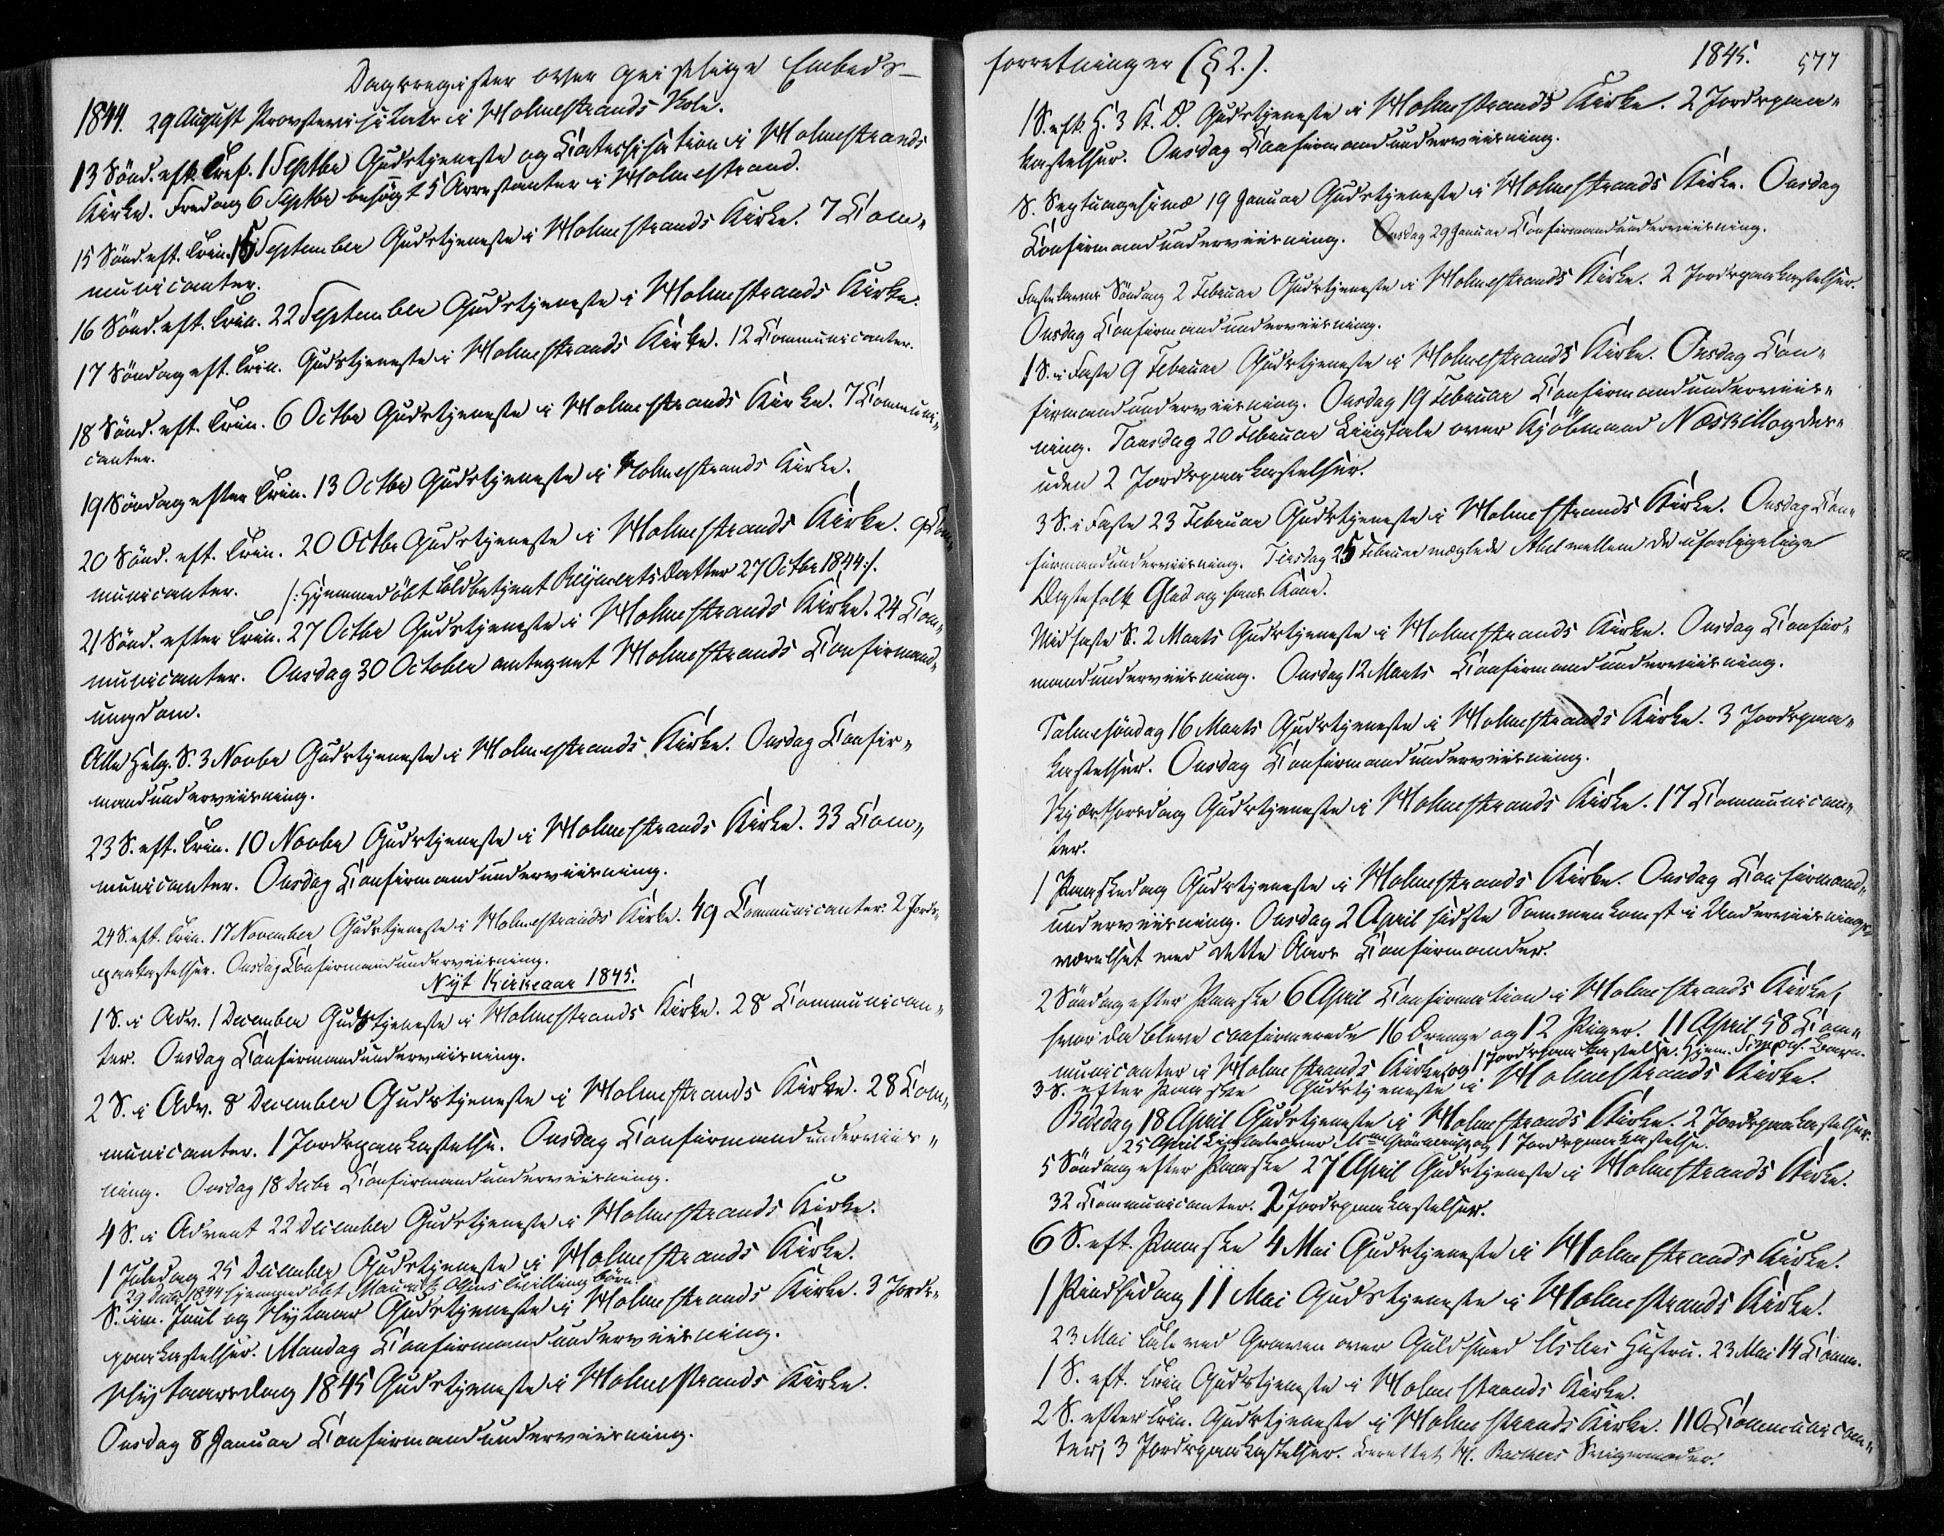 Dagsregister over geistlige Embeds-
1844. 29 August Provstevisitats i Holmestrands Skole.
13 Sönd. eft. Tref. 1 Septbr Gudstjeneste og Catechisation i Holmestrands
Kirke. Fredag 6 Septbr besögt 5 Arrestanter i Holmestrand.
15 Sönd. eft. Trin. 15 September Gudstjeneste i Holmestrands Kirke. 7 Com-
municanter.
16 Sönd. eft. Trin. 22 September Gudstjeneste i Holmestrands Kirke.
17 Söndag eft. Trin. Gudstjeneste i Holmestrands Kirke. 12 Communicanter.
18 Sönd. eft. Trin. 6 Octbr Gudstjeneste i Holmestrands Kirke. 7 Communi-
canter.
19 Söndag efter Trin. 13 Octbr Gudstjeneste i Holmestrands Kirke.
20 Sönd. eft. Trin. 20 Octbr Gudstjeneste i Holmestrands Kirke. 9 Com-
municanter. /: Hjemmedöbt Toldbetjent Reymerts Datter 27 Octbr 1844 :/.
21 Sönd. efter Trin. 27 Octbr Gudstjeneste i Holmestrands Kirke. 24 Com-
municanter. Onsdag 30 October antegnet Holmestrands Confirmand-
ungdom.
Alle Helg. S. 3 Novbr Gudstjeneste i Holmestrands Kirke. Onsdag Confir-
mandunderviisning.
23 S. eft. Trin. 10 Novbr Gudstjeneste i Holmestrands Kirke. 33 Com-
municanter. Onsdag Confirmandunderviisning.
24 S. eft. Trin. 17 November Gudstjeneste i Holmestrands Kirke. 49 Communicanter. 2 Jords-
paakastelser. Onsdag Confirmandunderviisning.
Nyt Kirkeaar 1845.
1 S. i Adv. 1 December Gudstjeneste i Holmestrands Kirke. 28 Communican-
ter. Onsdag Confirmandunderviisning.
2 S. i Adv. 8 December Gudstjeneste i Holmestrands Kirke. 28 Com-
municanter. 1 Jordspaakastelse. Onsdag Confirmandunderviis-
ning. Onsdag 18 Decbr Confirmandunderviisning.
4 S. i Advent 22 December Gudstjeneste i Holmestrands Kirke.
1 Juledag 25 December Gudstjeneste i Holmestrands Kirke.
29 Decbr 1844 hjemmedöbt Mauritz Olsens Tvillingbörn
S. im. Juul og Nytaar Gudstjeneste i Holmestrands Kirke. 3 Jords-
paakastelser. Mandag Confirmandunderviisning.
Nytaarsdag 1845 Gudstjeneste i Holmestrands Kirke.
Onsdag 8 Januar Confirmandunderviisning.
forretninger (§ 2.). 1845. 577
1 S. eft. H. 3 K. D. Gudstjeneste i Holmestrands Kirke. 2 Jordspaa-
kastelser. Onsdag Confirmandunderviisning.
S. Septuagesimæ 19 Januar Gudstjeneste i Holmestrands Kirke. Onsdag
Confirmandunderviisning. Onsdag 29 Januar Confirmandunderviisning.
Fastelavns Söndag 2 Februar Gudstjeneste i Holmestrands Kirke. 2 Jordspaakastelser.
Onsdag Confirmandunderviisning.
1 S. i Faste 9 Februar Gudstjeneste i Holmestrands Kirke. Onsdag Con-
firmandunderviisning. Onsdag 19 Februar Confirmandunderviis-
ning. Torsdag 20 Februar Liigtale over Kjöbmand Næss og des-
uden 2 Jordspaakastelser.
3 S. i Faste 23 Februar Gudstjeneste i Holmestrands Kirke. Onsdag Con-
firmandunderviisning. Tirsdag 25 Februar mæglede Abel mellem de uforligelige
Ægtefolk Glad og hans Kone.
Midfaste S. 2 Marts Gudstjeneste i Holmestrands Kirke. Onsdag Confir-
mandunderviisning. Onsdag 12 Marts Confirmandunderviisning.
Palmesöndag 16 Marts Gudstjeneste i Holmestrands Kirke. 3 Jordspaa-
kastelser. Onsdag Confirmandunderviisning.
Skjærthorsdag Gudstjeneste i Holmestrands Kirke. 17 Communican-
ter.
1 Paaskedag Gudstjeneste i Holmestrands Kirke. Onsdag Confirmand-
underviisning. Onsdag 2 April sidste Sammenkomst i Underviisnings-
værelset med dette Aars Confirmander.
2 Söndag efter Paaske 6 April Confirmation i Holmestrands Kirke,
hvor da bleve confirmerede 16 Drenge og 12 Piger. 11 April 58 Com-
municanter i Holmestrands Kirke, og 1 Jordspaakastelse. Hjem. Barn.
3 S. efter Paaske Gudstjeneste i Holmestrands Kirke.
Bededag 18 April Gudstjeneste i Holmestrands Kirke. 2 Jordspaakastelser.
25 April Liigtale over og 1 Jordspaakastelse.
5 Söndag efter Paaske 27 April Gudstjeneste i Holmestrands Kirke.
32 Communicanter. 2 Jordspaakastelser.
6 S. eft. Paaske 4 Mai Gudstjeneste i Holmestrands Kirke.
1 Pindsedag 11 Mai Gudstjeneste i Holmestrands Kirke.
23 Mai Tale ved Graven over Guldsmed Hustru. 23 Mai 14 Comm.
1 S. eft. Trin. Gudstjeneste i Holmestrands Kirke.
2 S. efter Trin. Gudstjeneste i Holmestrands Kirke. 110 Communican-
ter; 3 Jordspaakastelser. Berettet Bachers Svigermoder.